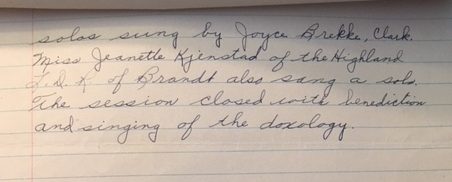 solos sung by Joyce Brekke, Clark.
Miss Jeanette Kjenstad of the Highland
L.D.R. of Brandt also sang a solo.
The session closed with benediction
and singing of the doxology.